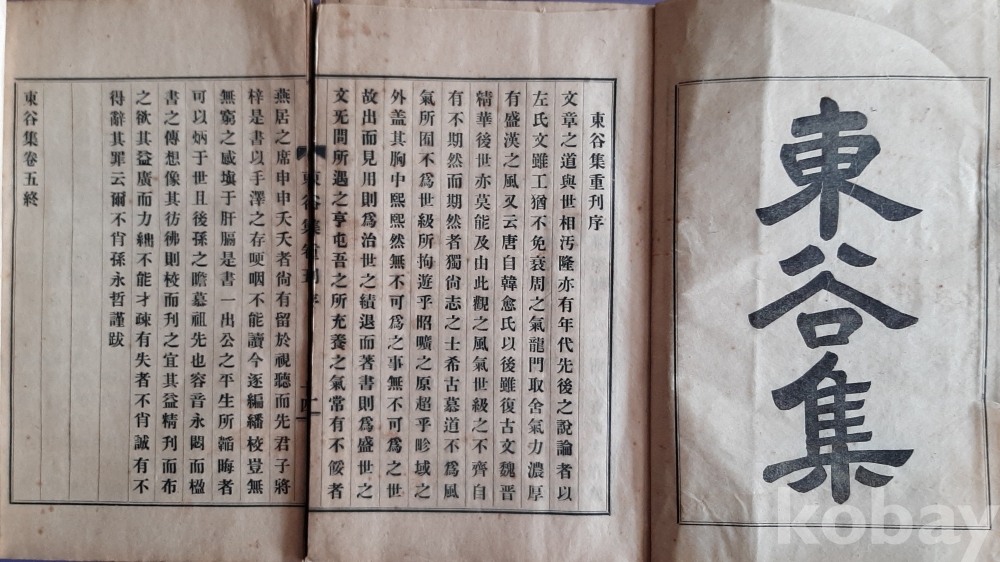 東谷集
東谷集重刊序
文章之道與世相汚隆亦有年代先後之說論者以
左氏文雖工猶不免衰周之氣龍門取舍氣力濃厚
有盛漢之風又云唐自韓愈氏以後雖復古文魏晋
精華後世亦莫能及由此觀之風氣世級之不齊自
有不期然而期然者獨尙志之士希古慕道不爲風
氣所囿不爲世級所拘遊乎昭曠之原超乎畛域之
外盖其胸中熙熙然無不可爲之事無不可爲之世
故出而見用則爲治世之績退而著書則爲盛世之
文旡問所遇之亨屯吾之所充養之氣常有不餒者
東谷集卷五
燕居之席申申夭夭者尙有留於視聽而先君子將
梓是書以手澤之存哽咽不能讀今逐編繙校豈無
無窮之感塡于肝膈是書一出公之平生所韜晦者
可以炳于世且後孫之瞻慕祖先也容音永閟而楹
書之傳想像其彷彿則校而刊之宜其益精刊而布
之欲其益廣而力絀不能才疎有失者不肖誠有不
得辭其罪云爾不肖孫永哲謹跋
東谷集卷五終
kobay